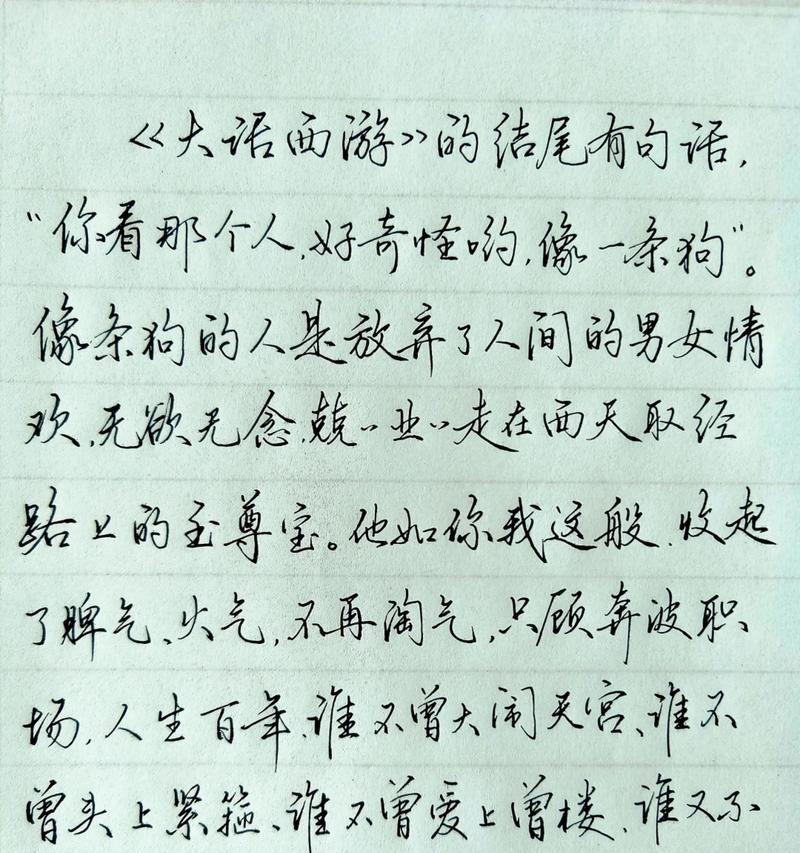 《大话西游》的结尾有句话，
“你看那个人，好奇怪哟，像一条狗”。
像条狗的人是放弃了人间的男女情
欢，无欲无念，兢〃业〃走在西天取经
路上的至尊宝。他如你我这般，收起
了脾气、火气，不再淘气，只顾奔波职
场，人生百年，谁不曾大闹天宫、谁不
曾头上紧箍、谁不曾爱上曾楼、谁又不